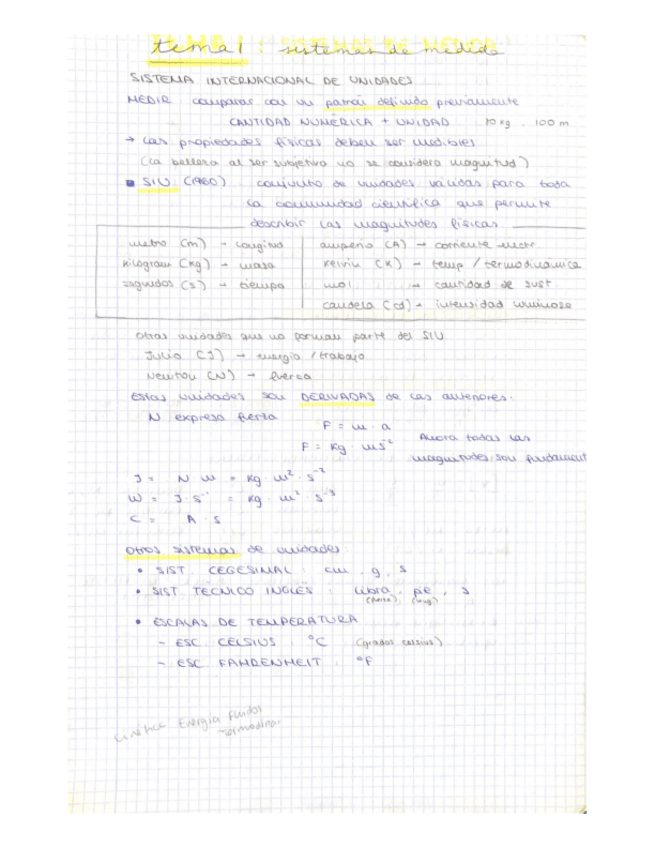 tema 1 : sistemas de medida
SISTEMA INTERNACIONAL DE UNIDADES
MEDIR comparar con un patrón definido previamente
CANTIDAD NUMÉRICA + UNIDAD 10 kg . 100 m
→ Las propiedades físicas deben ser medibles
(La belleza al ser subjetiva no se considera magnitud)
SIU (1960) conjunto de unidades válidas para toda
la comunidad científica que permite
describir las magnitudes físicas
metro (m) → longitud
kilogramo (kg) → masa
segundos (s) → tiempo
amperio (A) → corriente electr.
kelvin (K) → temp / termodinámica
mol → cantidad de sust
candela (cd) → intensidad luminosa
Otras unidades que no forman parte del SIU
Julio (J) → energía / trabajo
Newton (N) → fuerza
Estas unidades son DERIVADAS de las anteriores.
N expresa fuerza
F = m · a
F = kg · ms⁻²
Ahora todas las
magnitudes son fundament
J = N m = kg · m² · s⁻²
W = J · s⁻¹ = kg · m² · s⁻³
C = A · s
Otros sistemas de unidades:
• SIST. CEGESIMAL : cm , g , s
• SIST TÉCNICO INGLÉS : libra , pie , s
(fuerza) (long)
• ESCALAS DE TEMPERATURA
- ESC CELSIUS : °C (grados celsius)
- ESC FAHRENHEIT : °F
Energía Fluidos
Termodina.